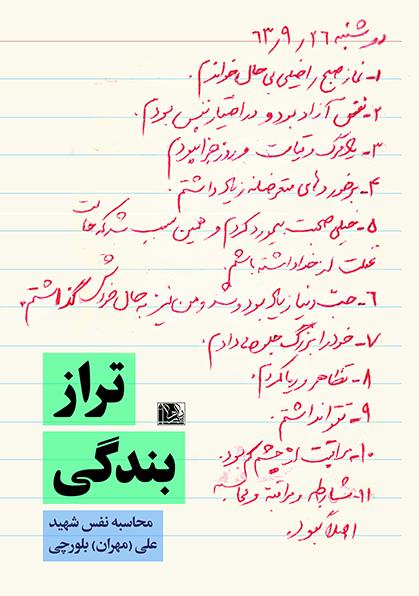 دوشنبه ۲۶ر۹ر۶۳
۱- نماز صبح را خیلی بی حال خواندم.
۲- نفس آزاد بود و در اختیار نفس بودم.
۳- یاد مرگ و قیامت و روز جزا نبودم
۴- برخوردهای متعرضانه زیاد داشتم.
۵- خیلی صحبت بیمورد کردم و همین سبب شد که حالت
غفلت از خدا داشته باشم.
۶- حب دنیا زیاد بود و شد و من نیز به حال خودش گذاشتم.
۷- خود را بزرگ جلوه می‌دادم.
۸- تظاهر و ریا کردم.
۹- تقوا نداشتم.
۱۰- مراقبت از چشم کم بود.
۱۱- مشارطه و مراقبه و محاسبه
اصلاً نبود.
تراز
بندگی
محاسبه نفس شهید
علی (مهران) بلورچی